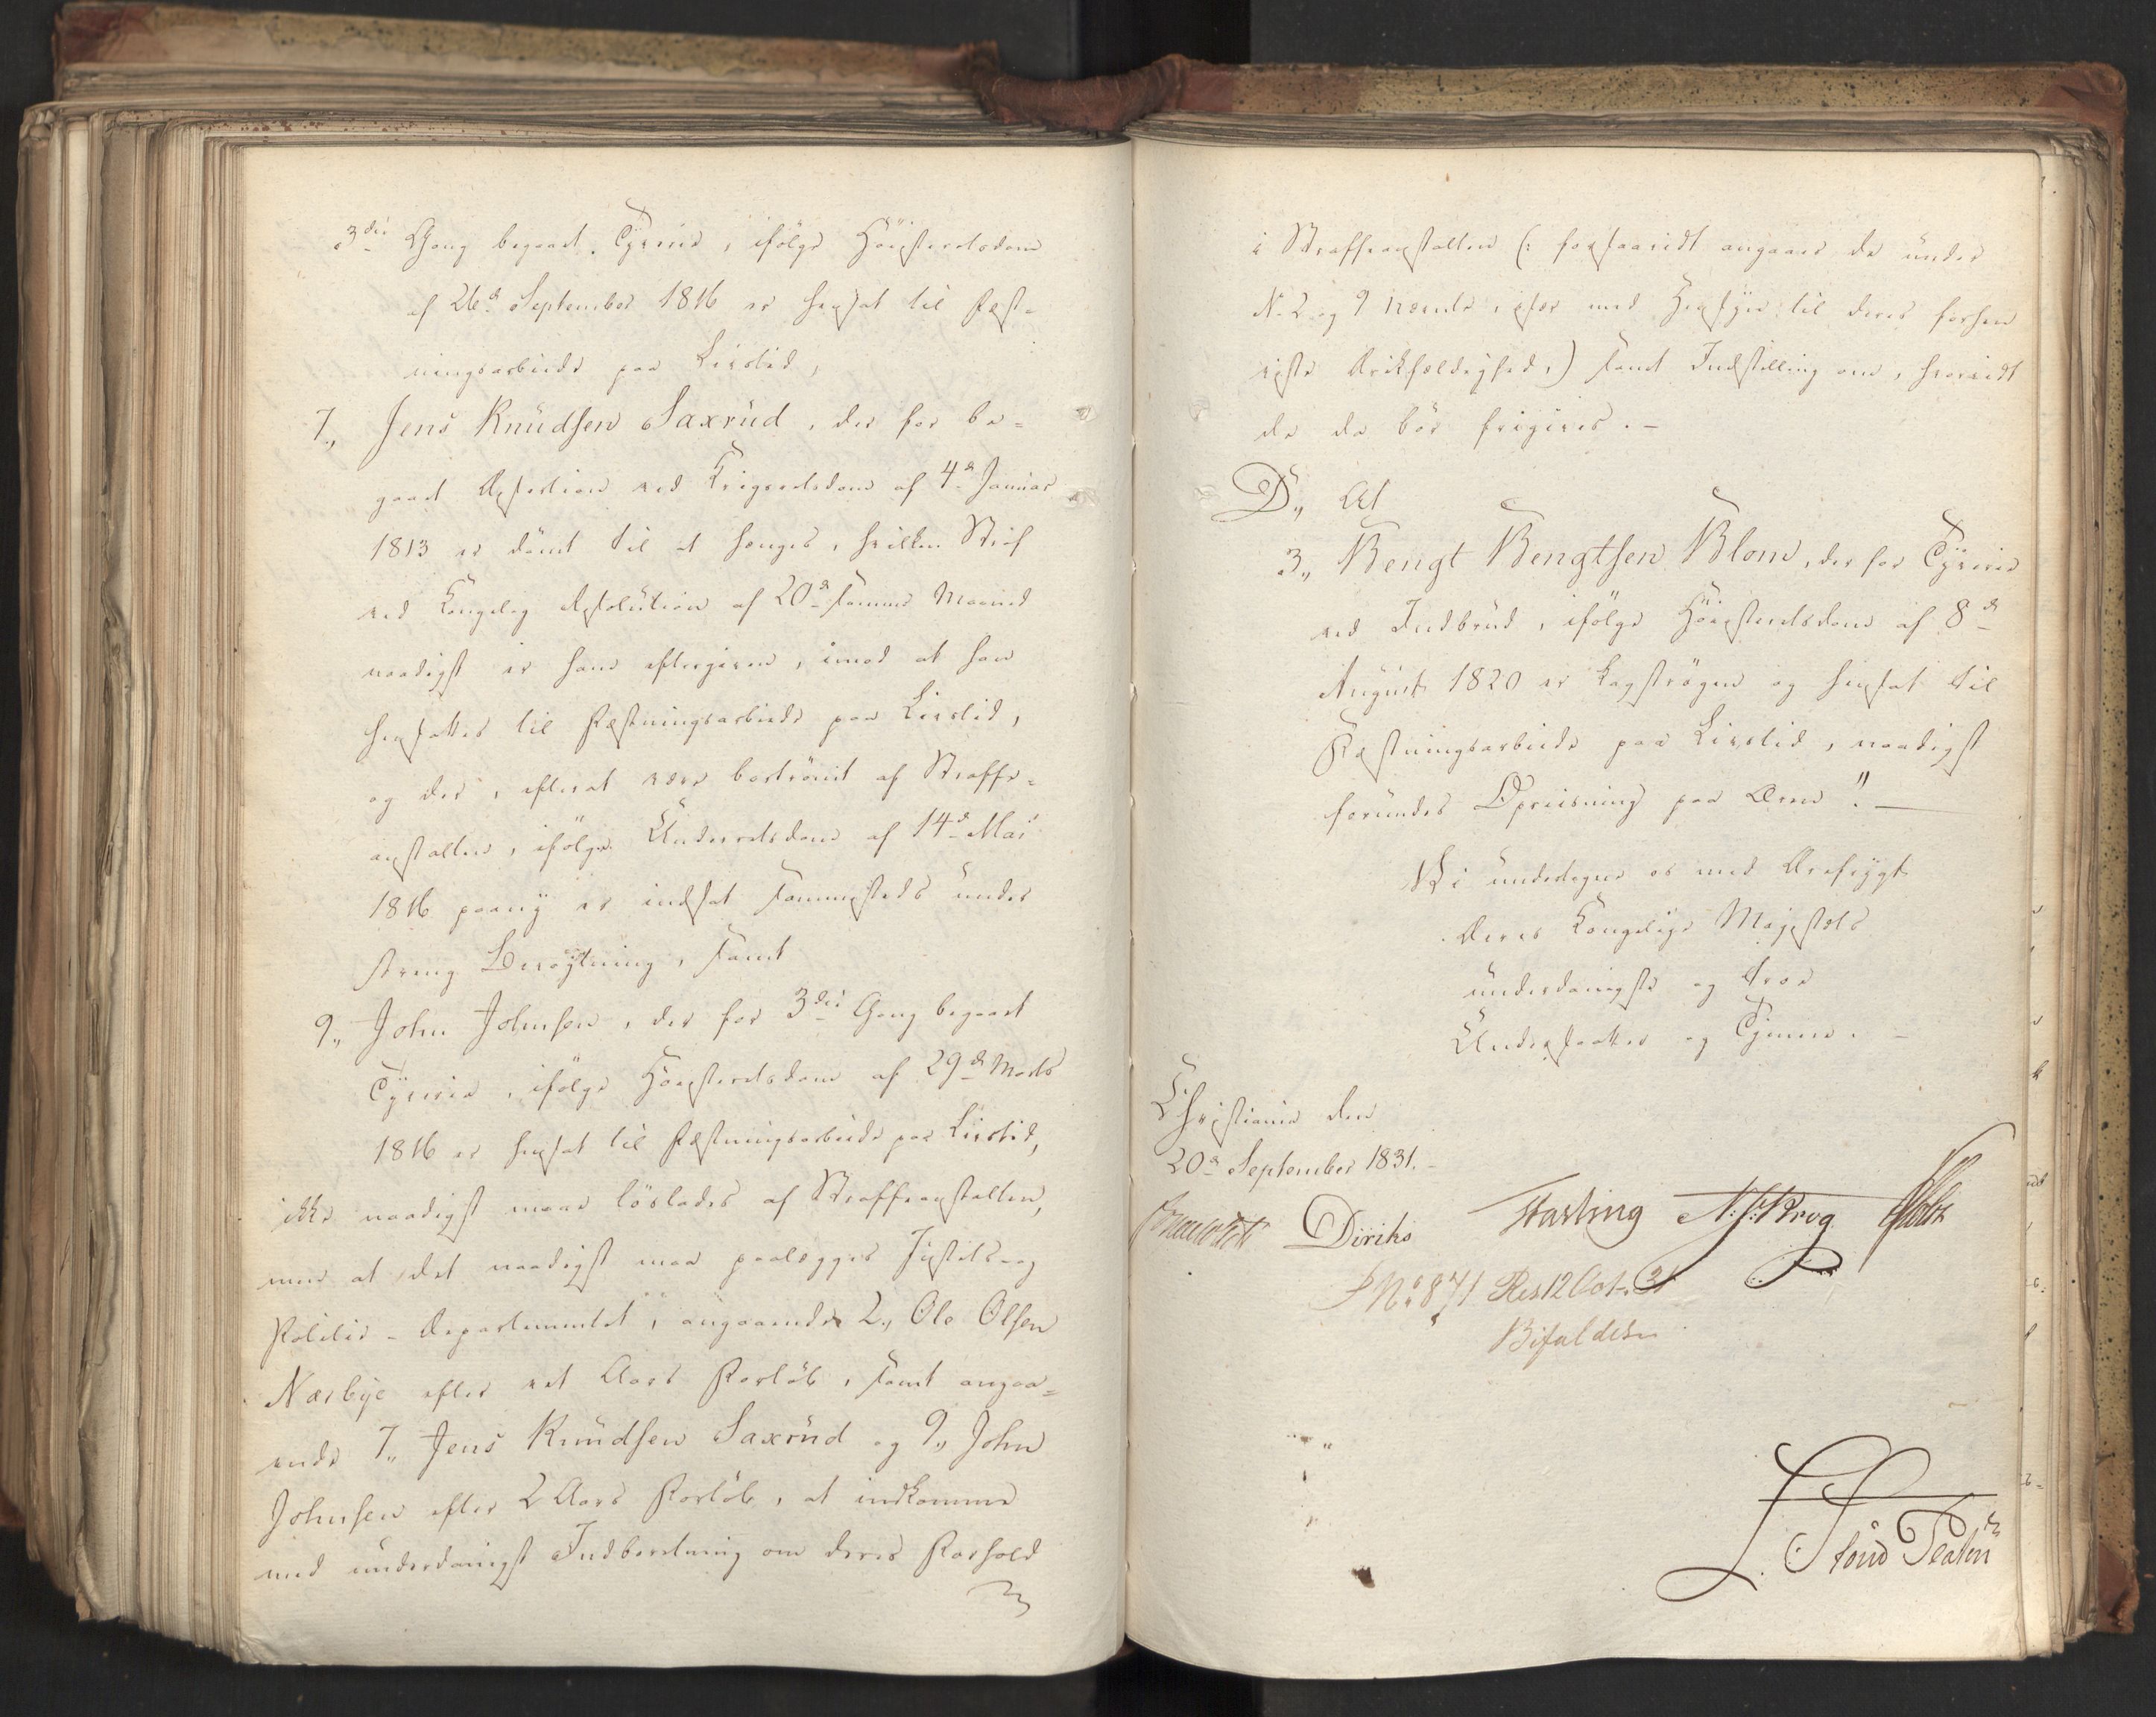 3die Gang begaaet Tyverie, ifölge Höiesteretsdom
af 26d September 1816 er hensat til Fæst-
ningsarbeide paa Livstid,
7., Jens Knudsen Saxrud, der for be-
gaaet Desertion ved Krigsretsdom af 4d Januar
1813 er dömt til at hænges, hvilken Straf
ved Kongelig Resolution af 20d samme Maaned
naadigst er ham eftergiven, imod at han
hensættes til Fæstningsarbeide paa Livstid,
og der, efterat være bortrömt af Straffe-
anstalten, ifölge Underretsdom af 14d Mai
1816 paany er indsat sammesteds under
streng Bevogtning, samt
9., John Johnsen, der for 3die Gang begaaet
Tyverie, ifölge Höiesteretsdom af 29d Marts
1816 er hensat til Fæstningsarbeide paa Livstid,
ikke naadigst maae löslades af Straffeanstalten,
men at det naadigst maa paalægges Justits- og
Politie-Departementet, angaaende 2., Ole Olsen
Nærbye efter eet Aars Forlöb, samt angaa-
ende 7., Jens Knudsen Saxrud og 9., John
Johnsen efter 2 Aars Forlöb, at indkomme
med underdanigst Indberetning om deres Forhold
i Straffeanstalten (: forsaavidt angaaer de under
N. 2 og 9 nævnte, især med Hensyn til deres forhen
viste Drikfældighed,) samt Indstilling om, hvorvidt
de da bör frigives. -
D., At
3., Bengt Bengtsen Blom, der for Tyverie
ved Indbrud, ifölge Höiesteretsdom af 8d
August 1820 er kagströgen og hensat til
Fæstningsarbeide paa Livstid, naadigst
forundes Opreisning paa Æren". -
Vi undertegne os med Ærefrygt
Deres Kongelige Majestæts
underdanigste og troe
Undersaatter og Tjenere. -
Christiania den
20d September 1831. -
Diriks Fasting N. J. Krog Holst
P No 871 Res 12 Oct. 31
Bifaldes
Platen